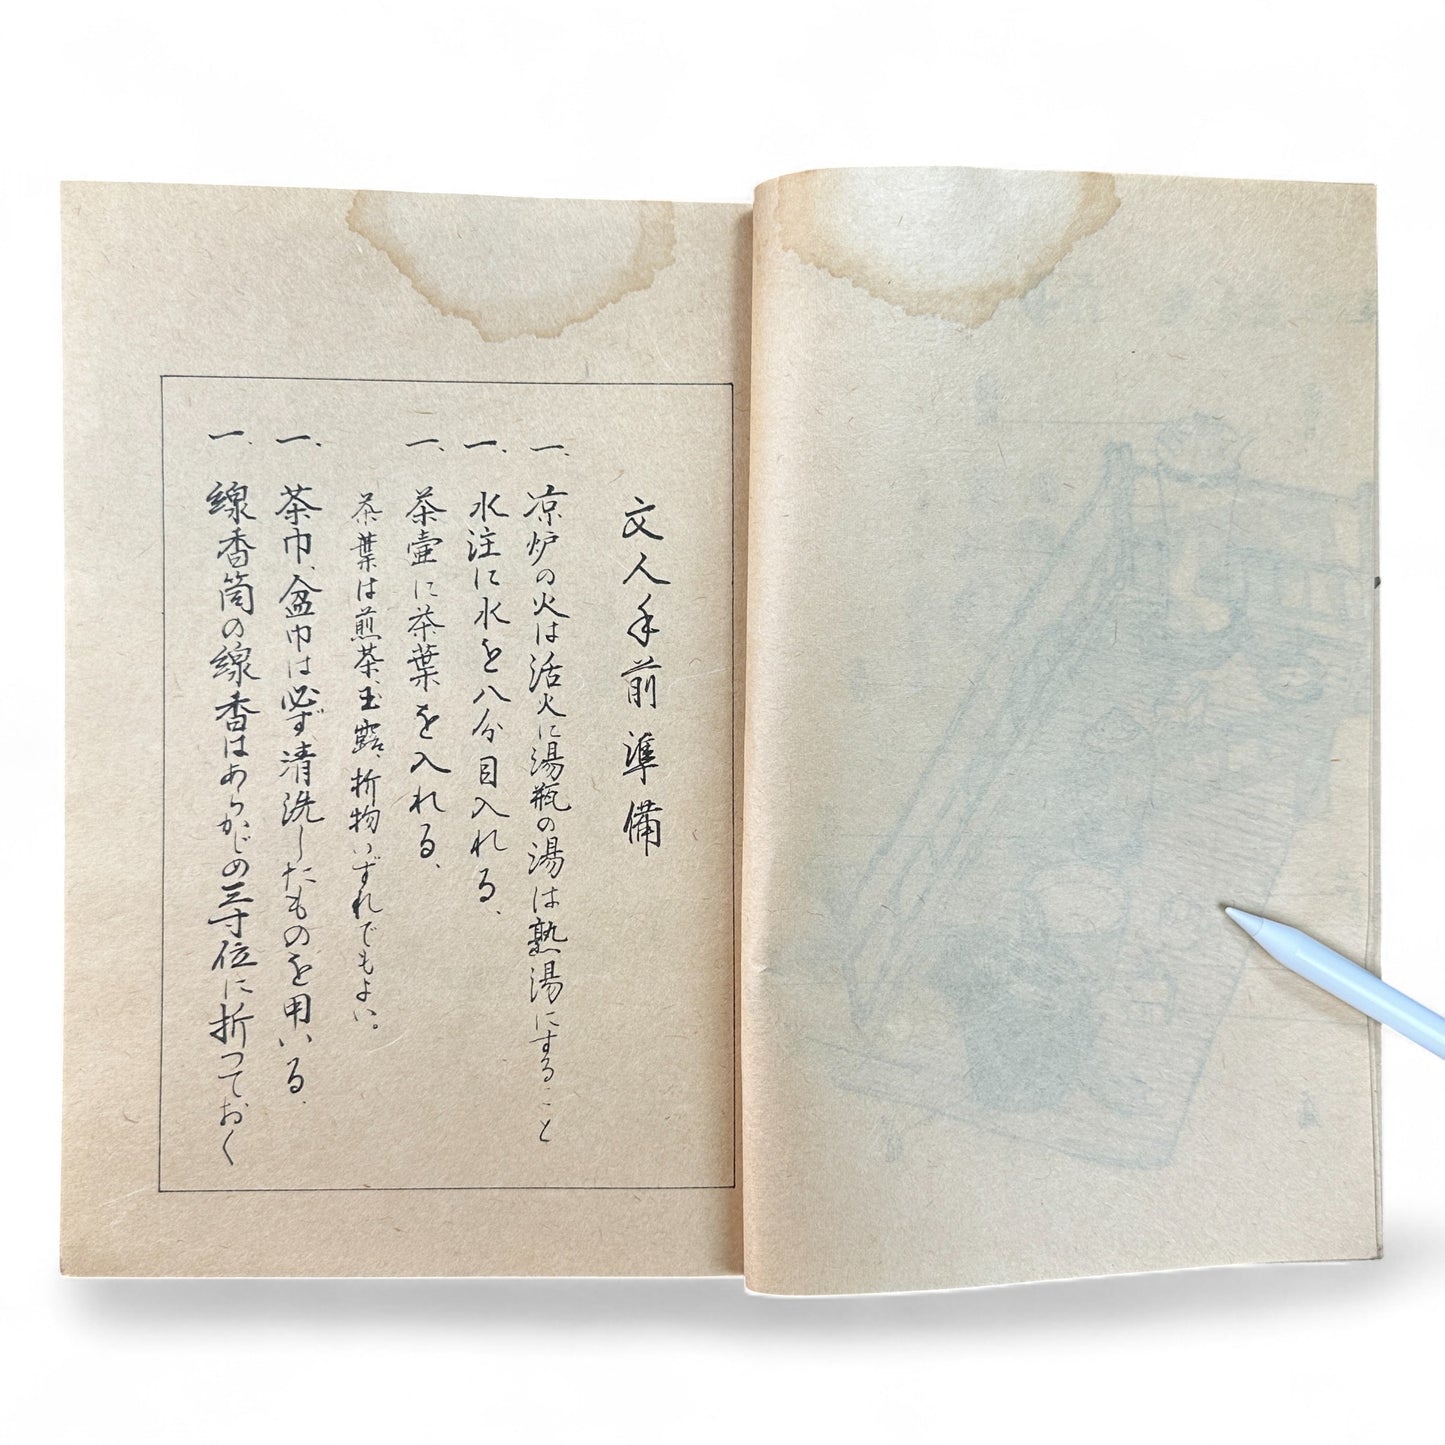 文人手前準備
一、凉炉の火は活火に湯瓶の湯は熟湯にすること
一、水注に水を八分目入れる、
一、茶壷に茶葉を入れる、
茶葉は煎茶、玉露、折物いずれでもよい。
一、茶巾、盆巾は必ず清洗したものを用いる、
一、線香筒の線香はあらかじめ三寸位に折っておく